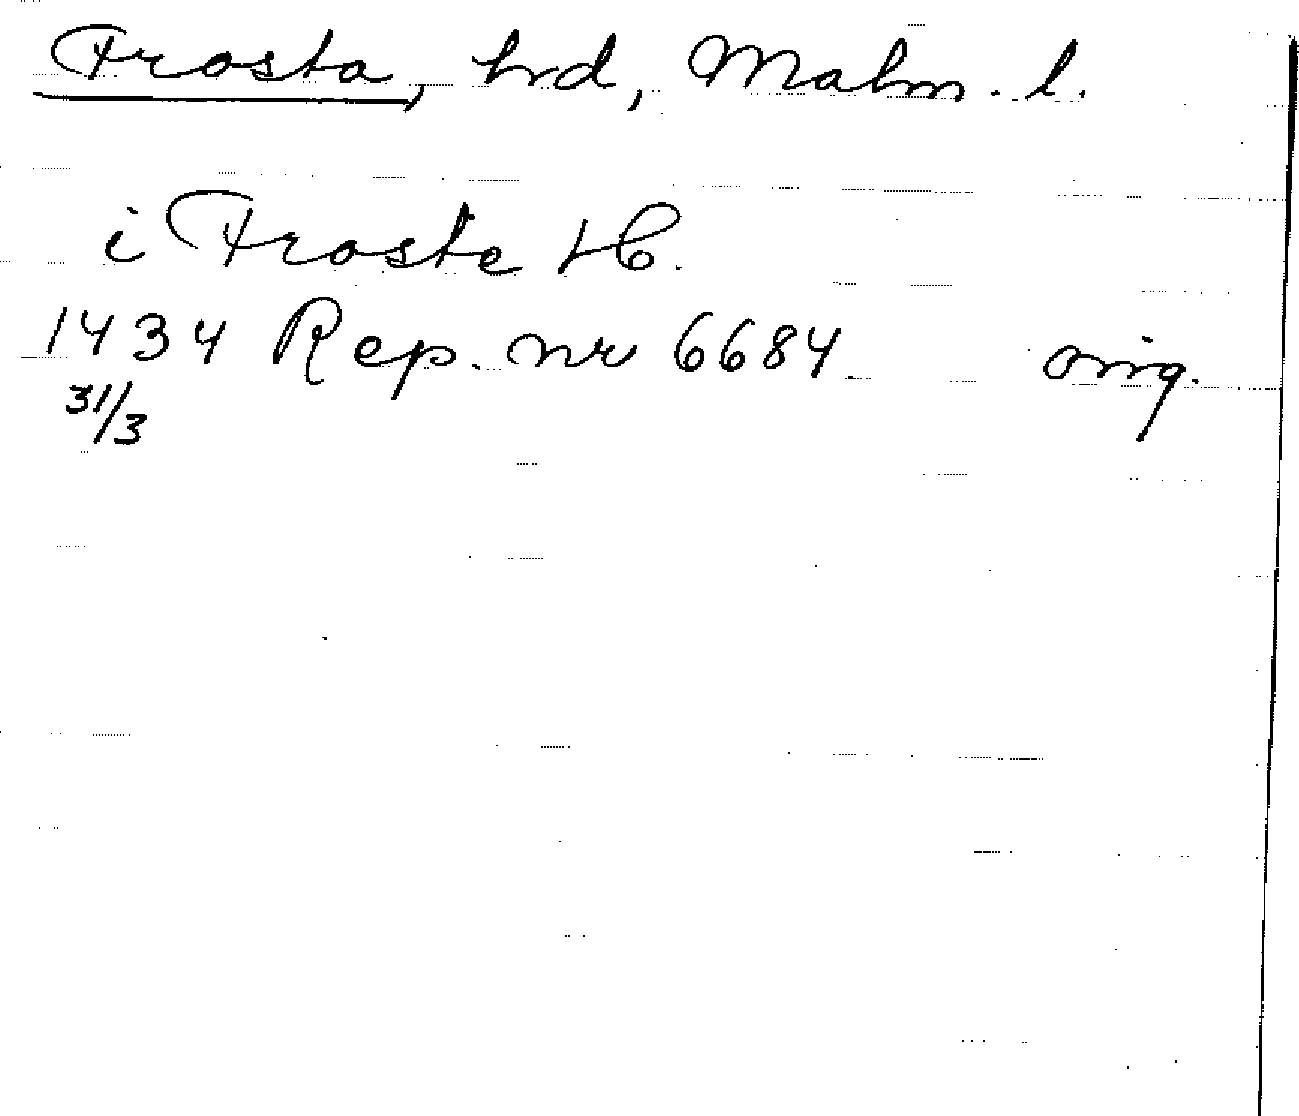 Frosta, hrd, Malm. l.
i Froste H.
1434 Rep. nr 6684 orig.
31/3